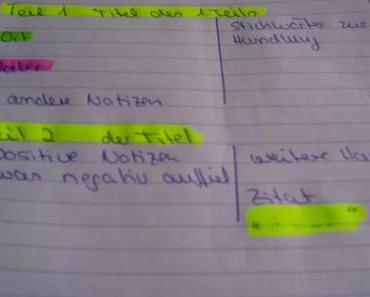 Teil 1 Titel des 1 Teils
Stichwörter zur
Handlung
Ort
andere Notizen
eil 2 der Titel
positive Notizen
was negativ auffiel
weitere Ha
Zitat
"---------"